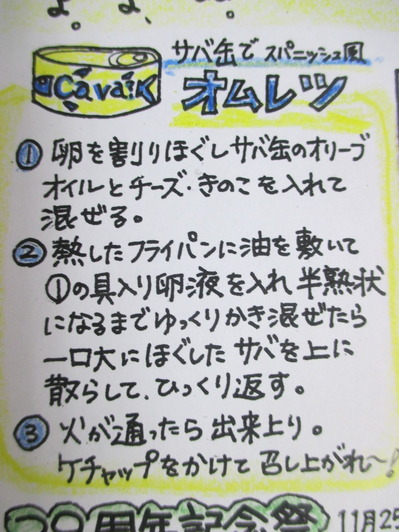 よ。 よ、
Cava!
サバ缶で スパニッシュ風
オムレツ
① 卵を割りほぐしサバ缶のオリーブ
オイルとチーズ・きのこを入れて
混ぜる。
② 熱したフライパンに油を敷いて
①の具入り卵液を入れ半熟状
になるまでゆっくりかき混ぜたら
一口大にほぐしたサバを上に
散らして、ひっくり返す。
③ 火が通ったら出来上り。
ケチャップをかけて召し上がれ〜!
周年記念祭 11月25